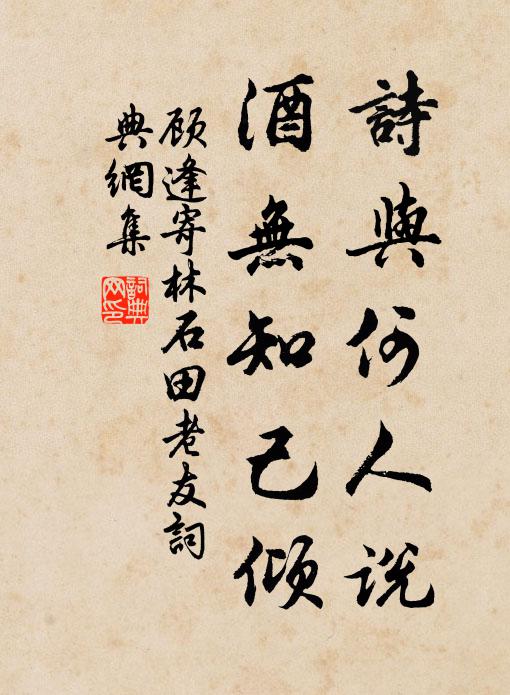 詩與何人說
酒無知己傾
顾逢寄林石田老友詞
典網集
詞典
网印